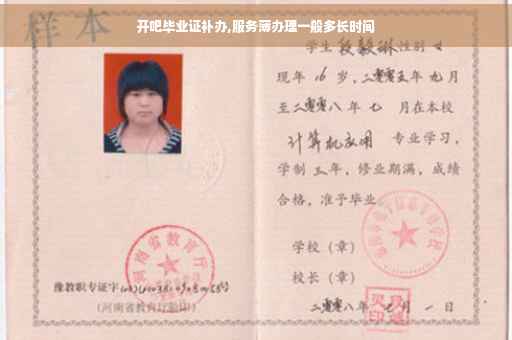 开吧毕业证补办,服务簿办理一般多长时间
样本
学生段毅琳性别女
现年16岁，二零零五年九月
至二零零八年七 月在本校
计算机应用 专业学习，
学制三年，修业期满，成绩
合格，准予毕业。
学校（章）
校长（章）
二零零八年 月一日
河南省教育厅
豫教职专证字
(河南省教育厅验印)